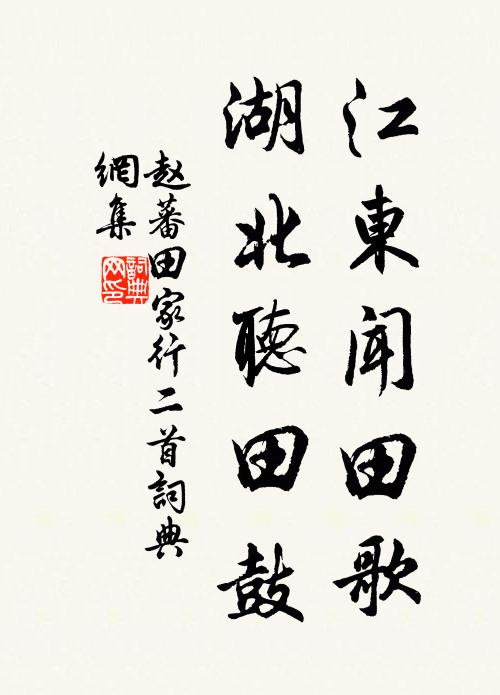 江東聞田歌
湖北聽田鼓
赵蕃田家行二首詞典
網集
詞典
網印